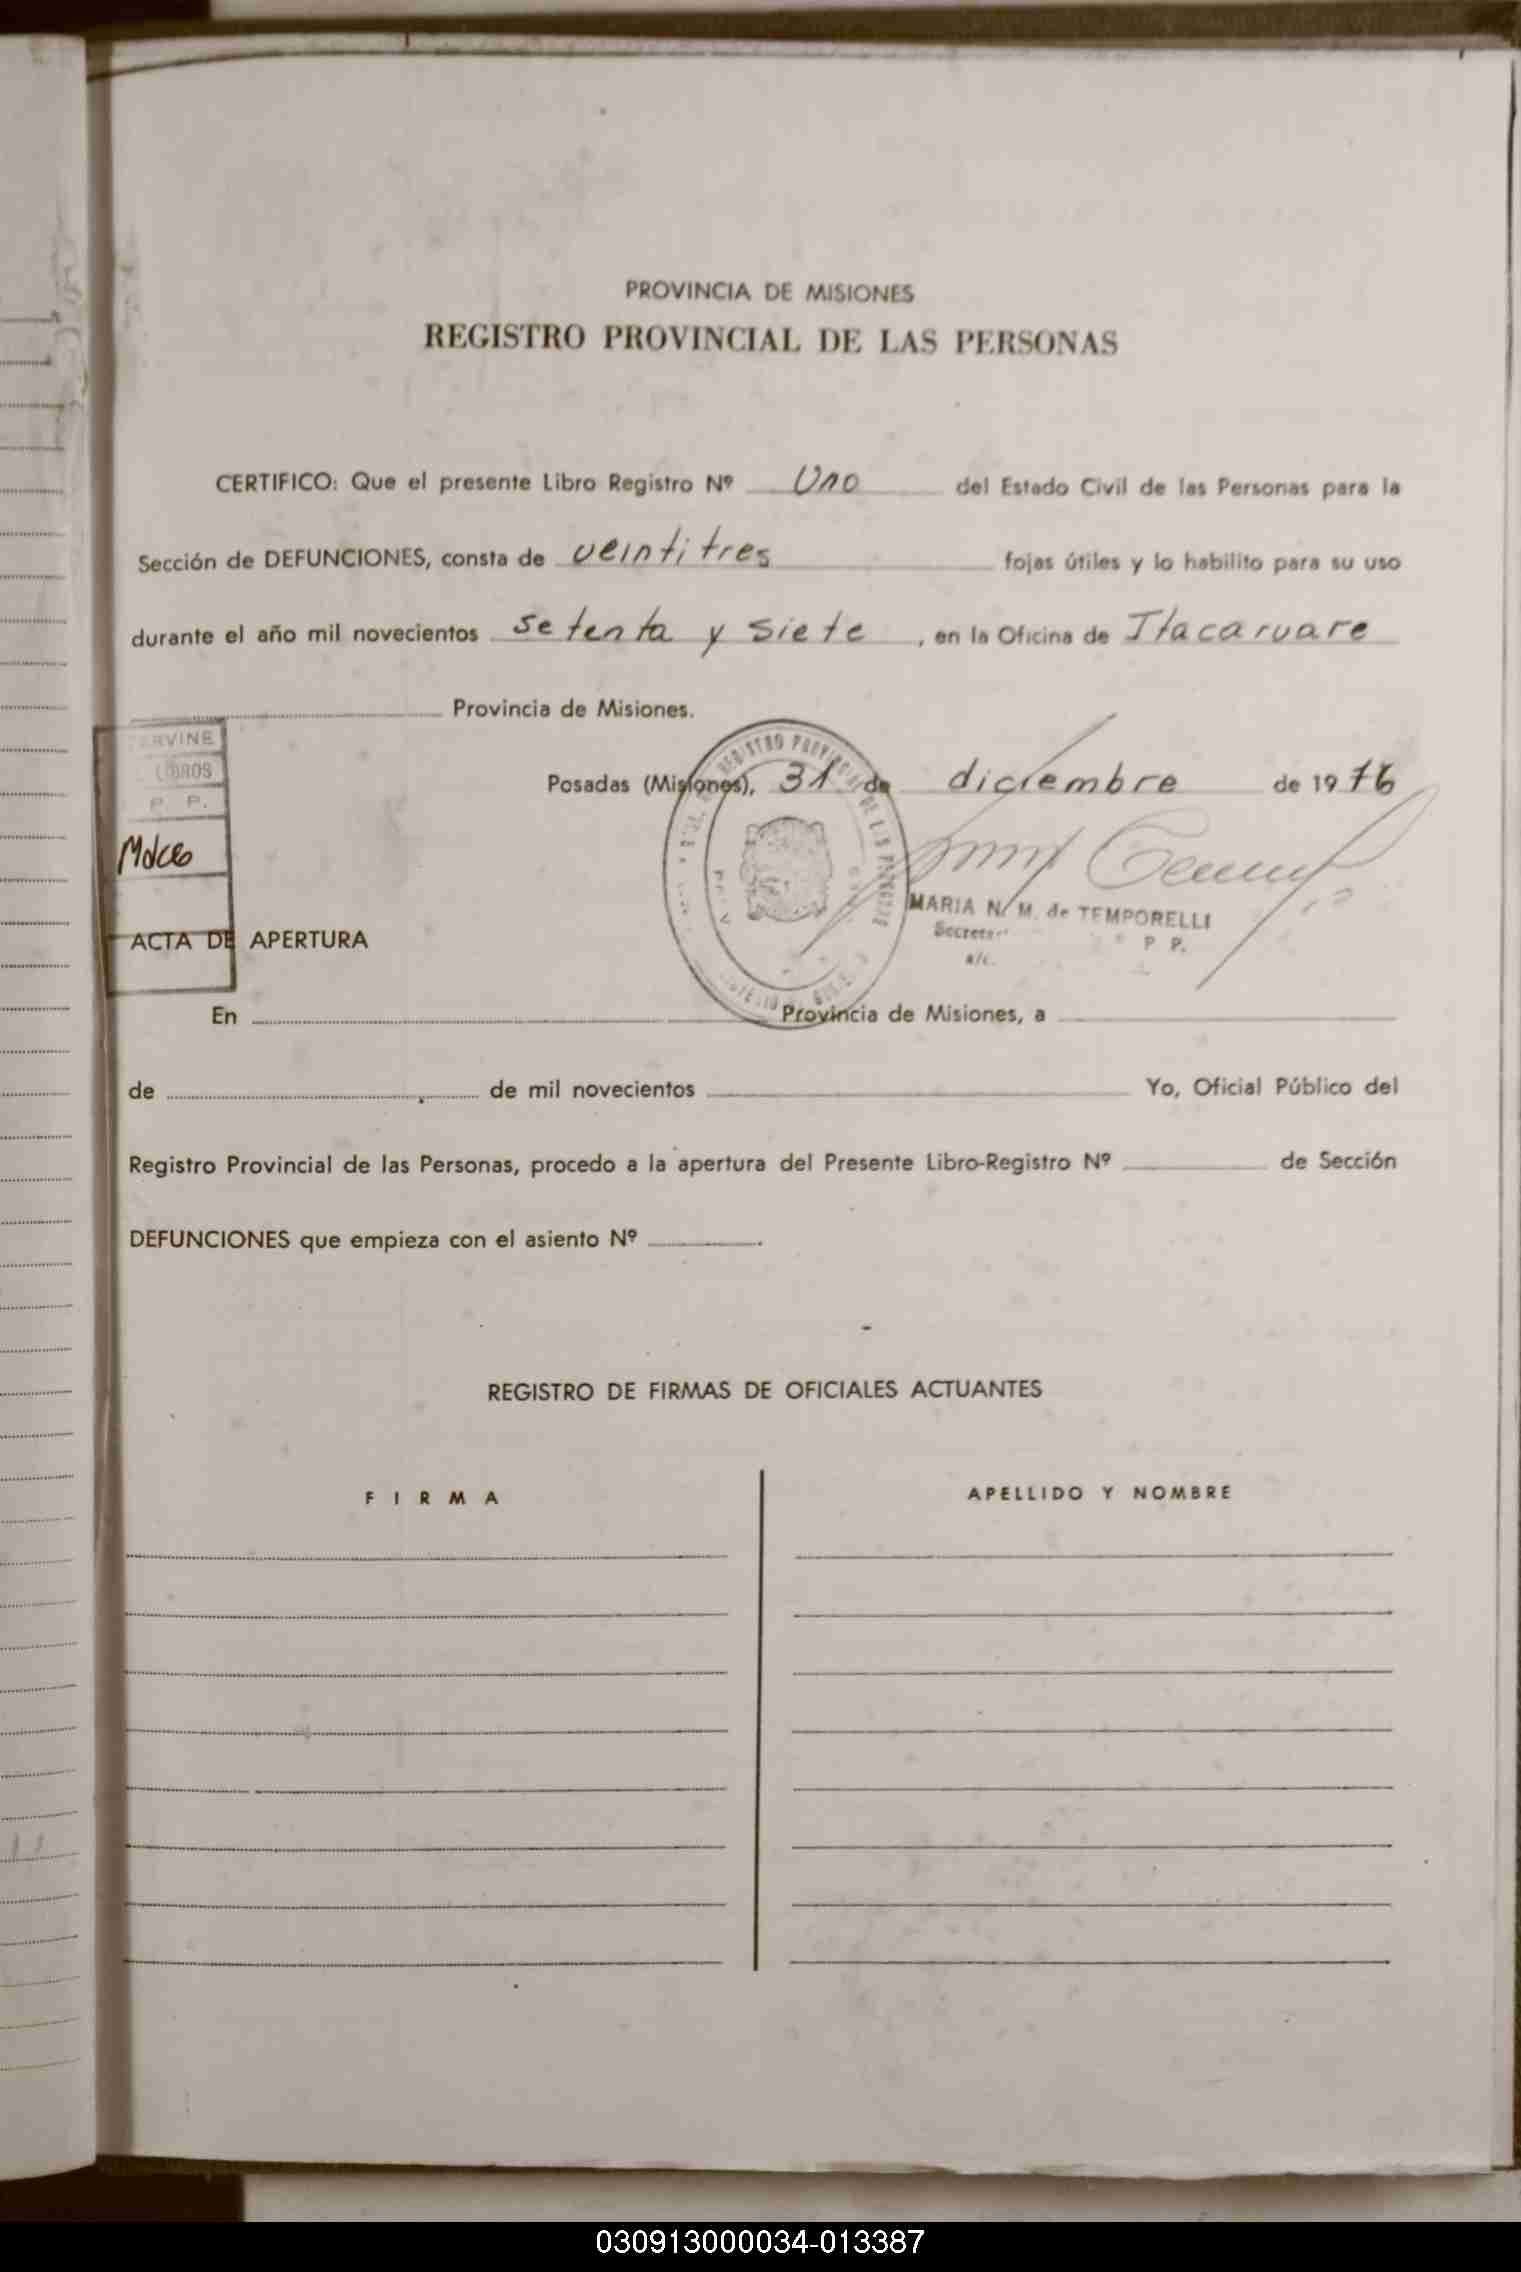 PROVINCIA DE MISIONES
REGISTRO PROVINCIAL DE LAS PERSONAS
CERTIFICO: Que el presente Libro Registro Nº Uno del Estado Civil de las Personas para la
Sección de DEFUNCIONES, consta de veintitres fojas útiles y lo habilito para su uso
durante el año mil novecientos setenta y siete, en la Oficina de Itacaruare
Provincia de Misiones.
Posadas (Misiones), 31 de diciembre de 1976
RVINE
LIBROS
P. P.
REGISTRO PROVINCIAL DE LAS PERSONAS
MARIA N. M. de TEMPORELLI
P P.
a/c.
ACTA DE APERTURA
En Provincia de Misiones, a
de de mil novecientos Yo, Oficial Público del
Registro Provincial de las Personas, procedo a la apertura del Presente Libro-Registro Nº de Sección
DEFUNCIONES que empieza con el asiento Nº
REGISTRO DE FIRMAS DE OFICIALES ACTUANTES
FIRMA APELLIDO Y NOMBRE
030913000034-013387